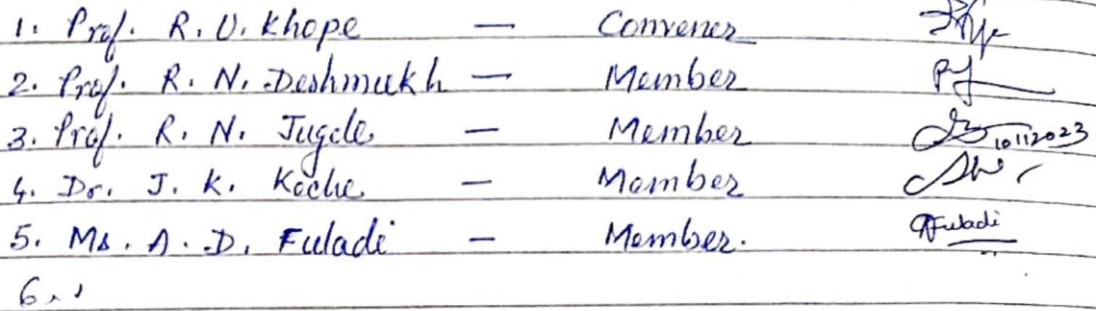 1. Prof. R. U. Khope — Convener
2. Prof. R. N. Deshmukh — Member
3. Prof. R. N. Jugele — Member 10112023
4. Dr. J. K. Keche — Member
5. Ms. A. D. Fuladi — Member. Fuladi
6.